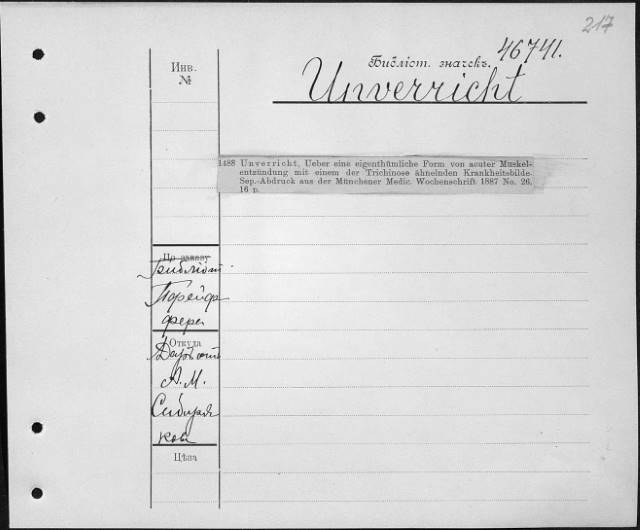 217
Инв.
№
Библіот. значекъ. 46741.
Unverricht
1488 Unverricht, Ueber eine eigenthümliche Form von acuter Muskel-
entzündung mit einem der Trichinose ähnelnden Krankheitsbilde.
Sep.-Abdruck aus der Münchener Medic. Wochenschrift 1887 No. 26,
16 p.
По заказу
Порейф
фера
Откуда
Даръ отъ
А. М.
Сибиря
кова
Цѣна